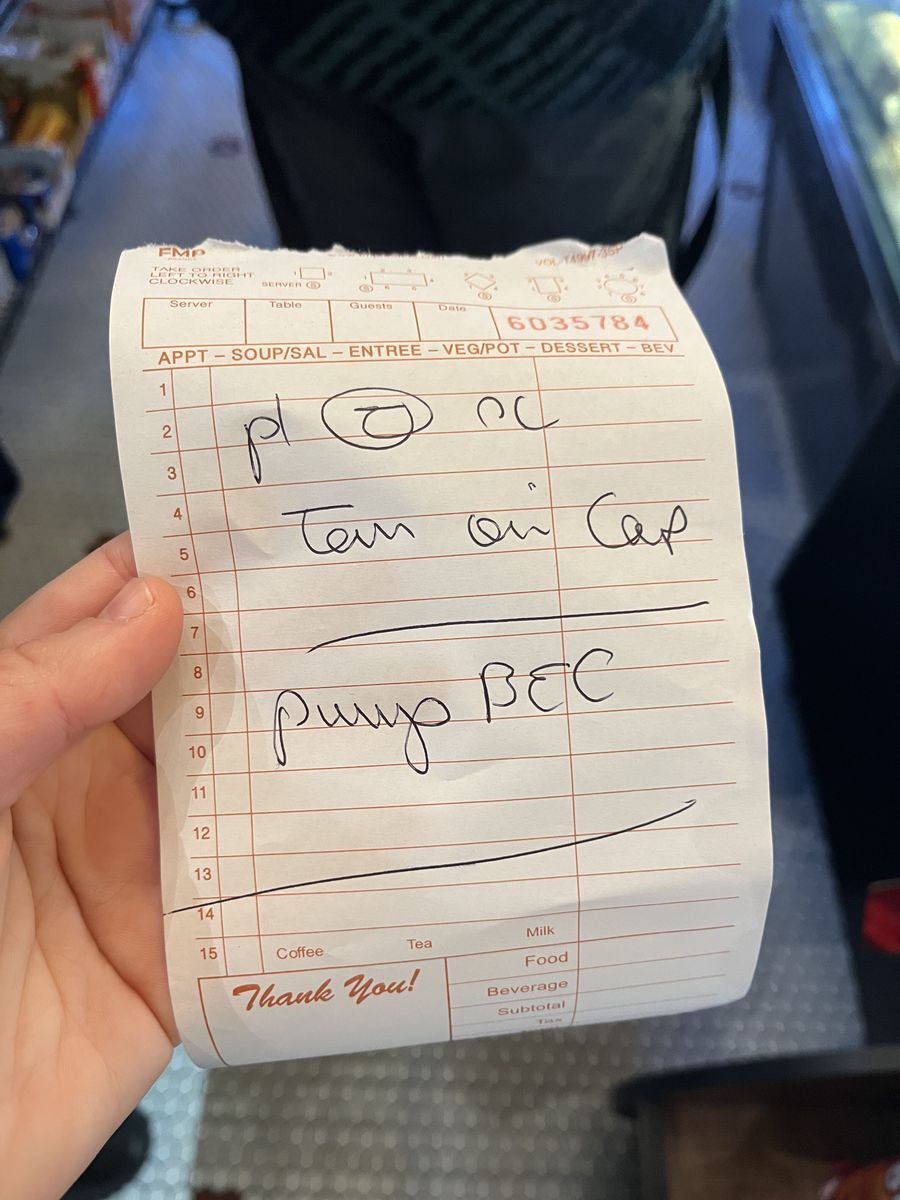 FMP
TAKE ORDER
LEFT TO RIGHT
CLOCKWISE
SERVER
Server Table Guests Date 6035784
APPT – SOUP/SAL – ENTREE – VEG/POT – DESSERT – BEV
1
2
pl
3
4
Tom on Cap
5
6
7
8
9
pump BEC
10
11
12
13
14
15 Coffee Tea Milk
Food
Thank You! Beverage
Subtotal
Tax